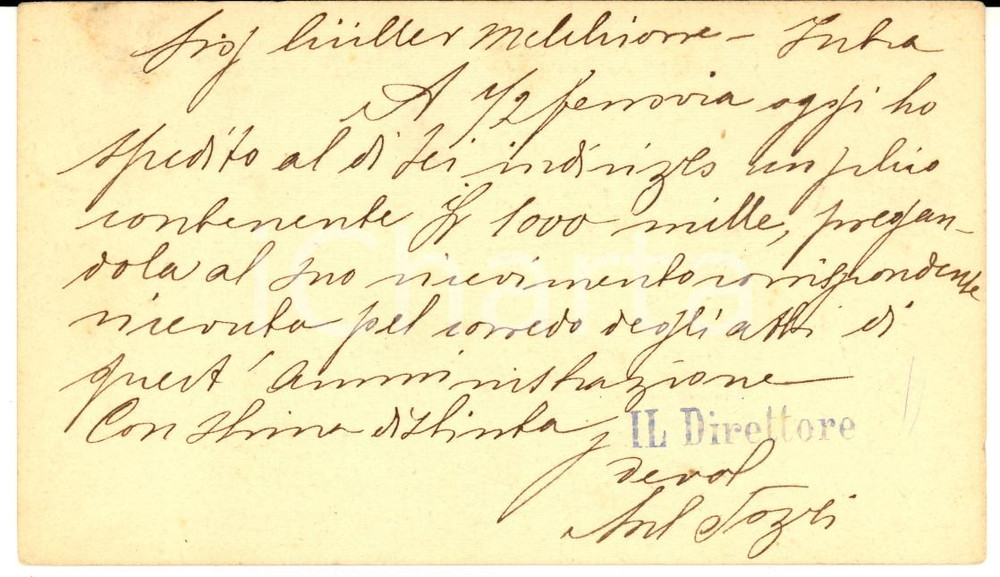 Sig Müller Melchiorre - Intra
A 1/2 ferrovia oggi ho
spedito al di Lei indirizzo un plico
contenente £ 1000 mille, pregan-
dola al suo ricevimento corrispondente
ricevuta pel corredo degli atti di
quest' Amministrazione
Con stima distinta
IL Direttore
devol
Tozzi
iCharta